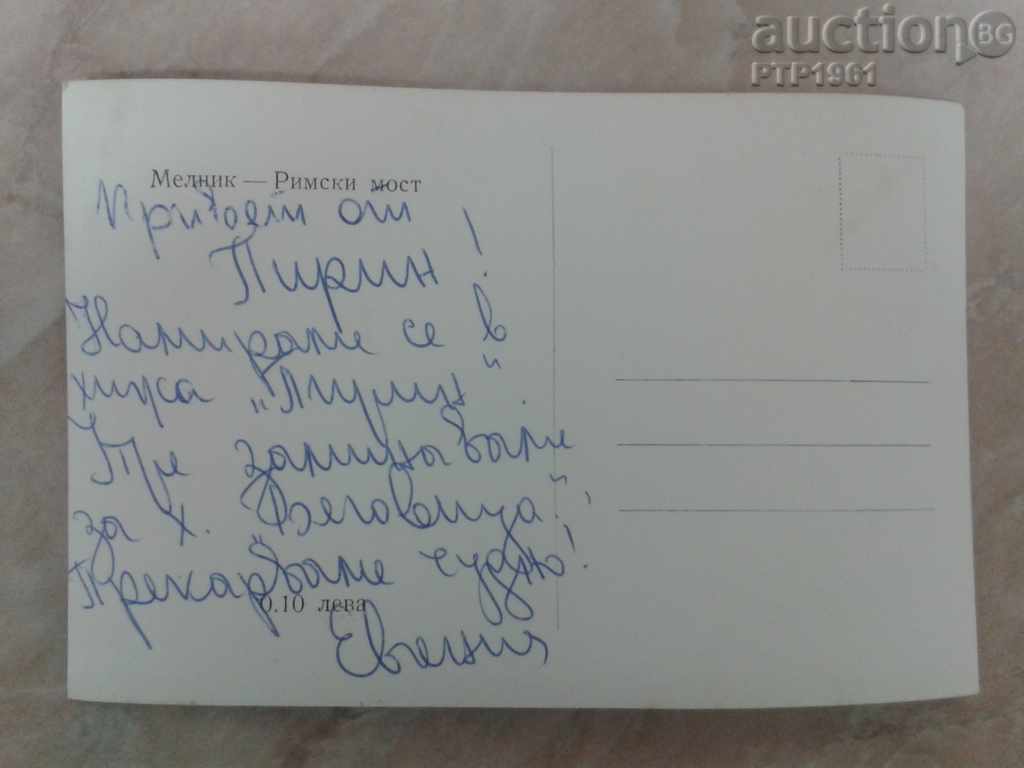 auction BG
PTP1961
Мелник — Римски мост
Привет от
Пирин!
Намираме се в
хижа „Пирин“.
Ще заминаваме
за х. „Беговица“!
Прекарваме чудно!
0.10 лева
Евгения